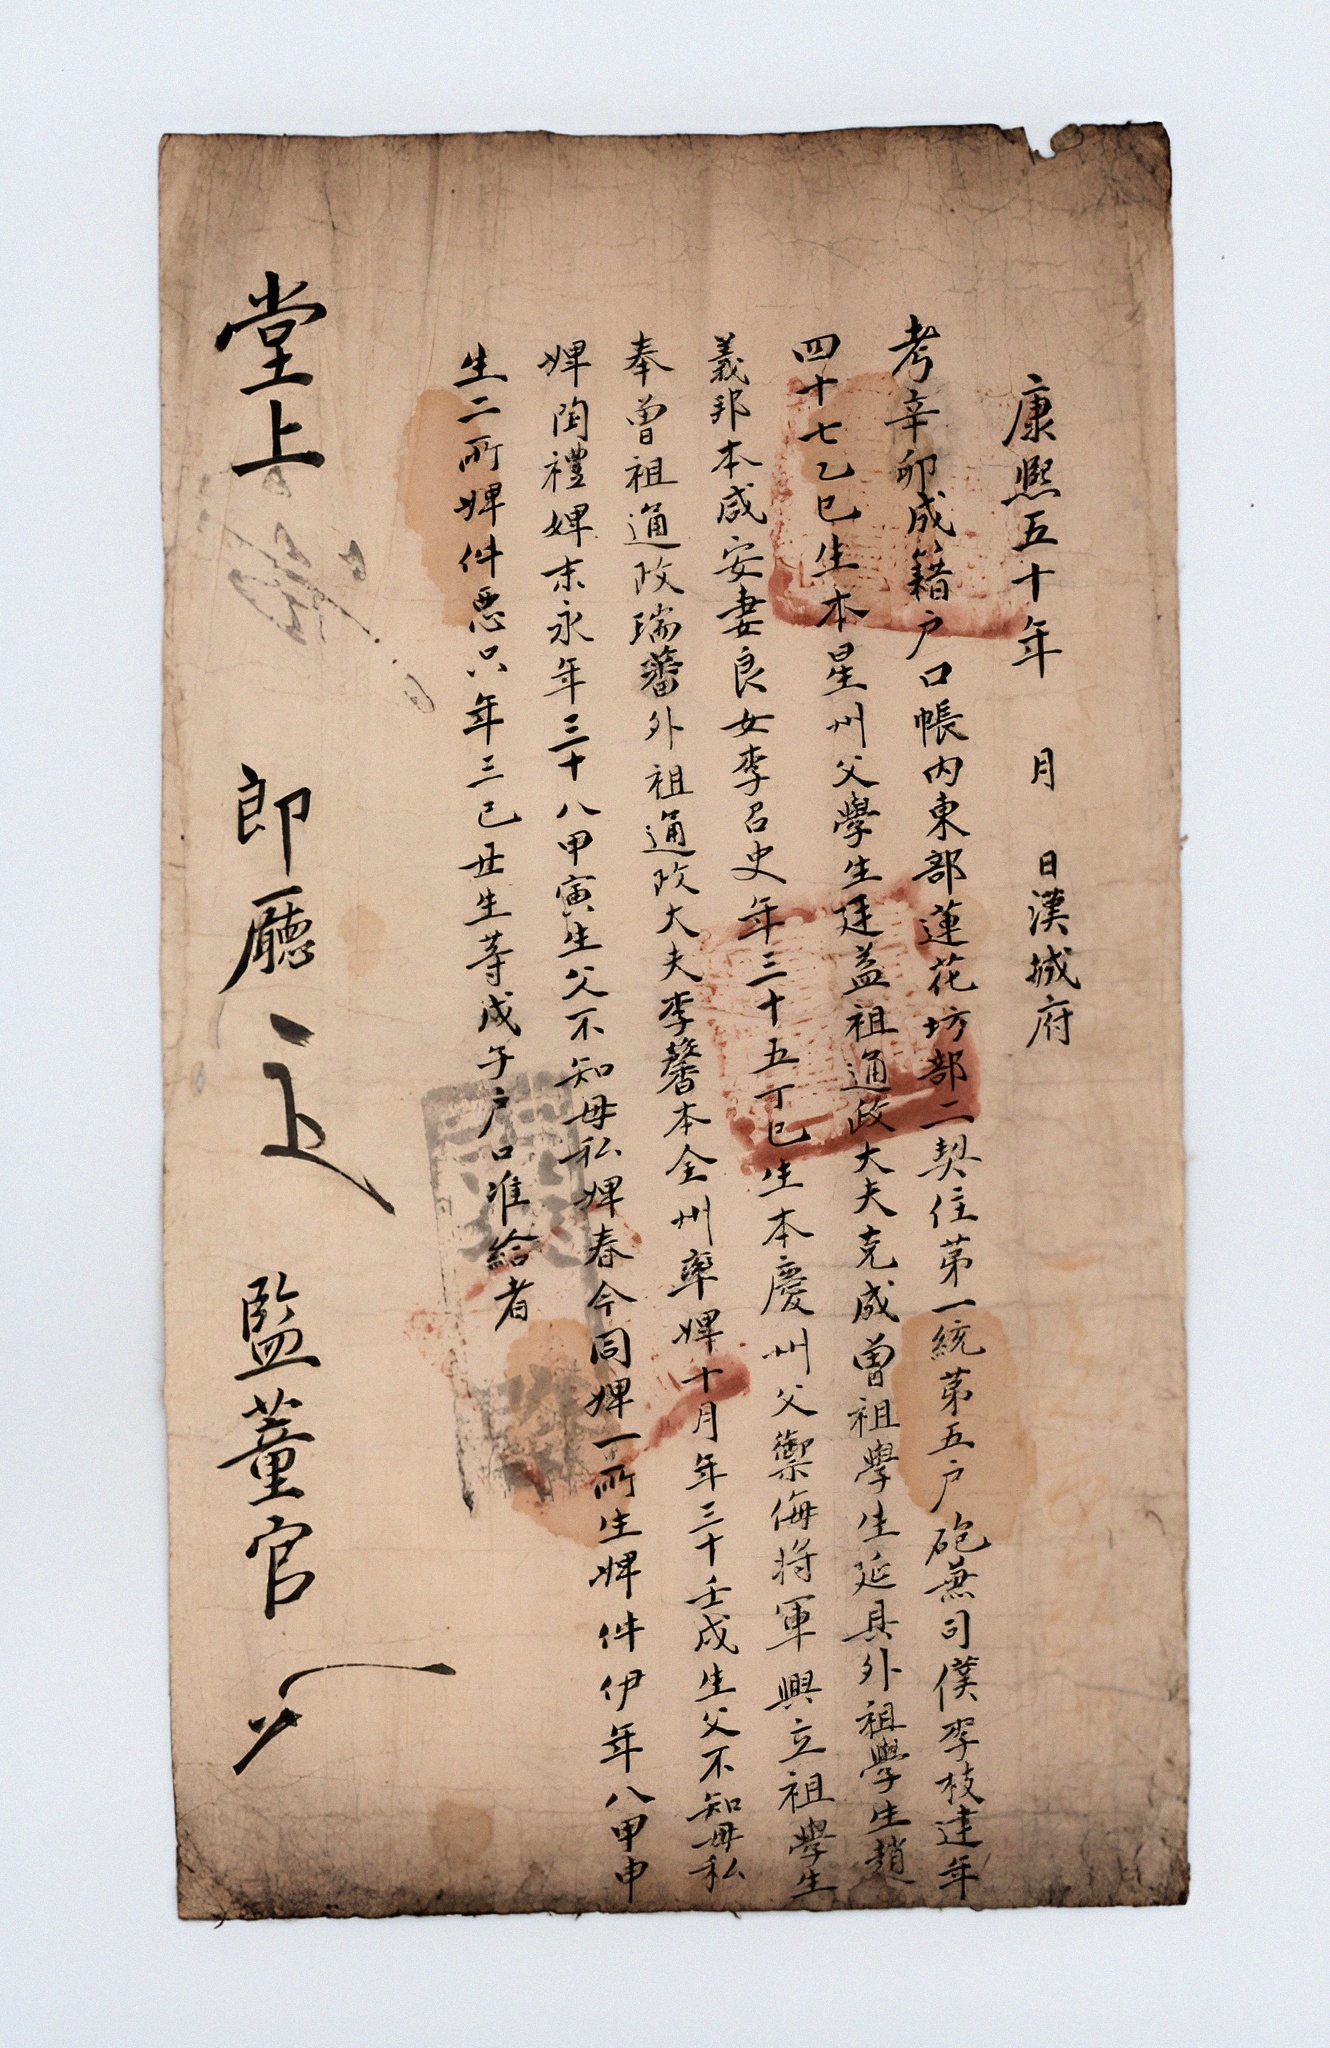 康熙五十年 月 日漢城府
考辛卯成籍戶口帳內東部蓮花坊部二契住第一統第五戶砲兼司僕李枝建年
四十七乙巳生本星州父學生廷益祖通政大夫克成曾祖學生延具外祖學生趙
義邦本咸安妻良女李召史年三十五丁巳生本慶州父禦侮將軍興立祖學生
奉曾祖通政瑞蕃外祖通政大夫李馨本全州率婢十月年三十壬戌生父不知母私
婢閏禮婢末永年三十八甲寅生父不知母私婢春今同婢一所生婢件伊年八甲申
生二所婢件惡只年三己丑生等戊子戶口准給者
堂上 郎廳 監董官